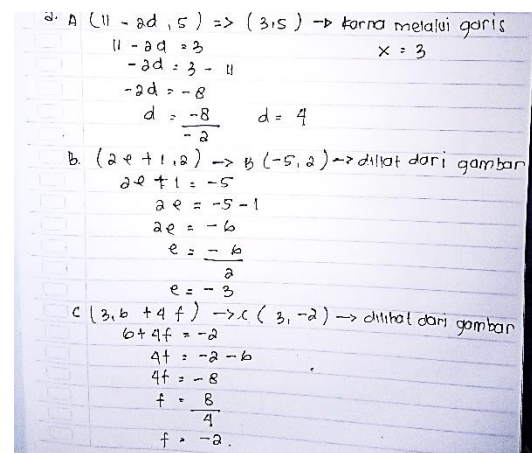 a. A (11 - 2d , 5) => (3,5) -> karna melalui garis
11 - 2d = 3 x = 3
- 2d = 3 - 11
- 2d = - 8
d = -8 / -2 d = 4
b. (2e + 1, 2) -> B (-5, 2) -> dilihat dari gambar
2e + 1 = -5
2e = -5 - 1
2e = -6
e = - 6 / 2
e = - 3
C (3, 6 + 4f) -> C (3, -2) -> dilihat dari gambar
6 + 4f = -2
4f = -2 - 6
4f = - 8
f = 8 / 4
f = -2.